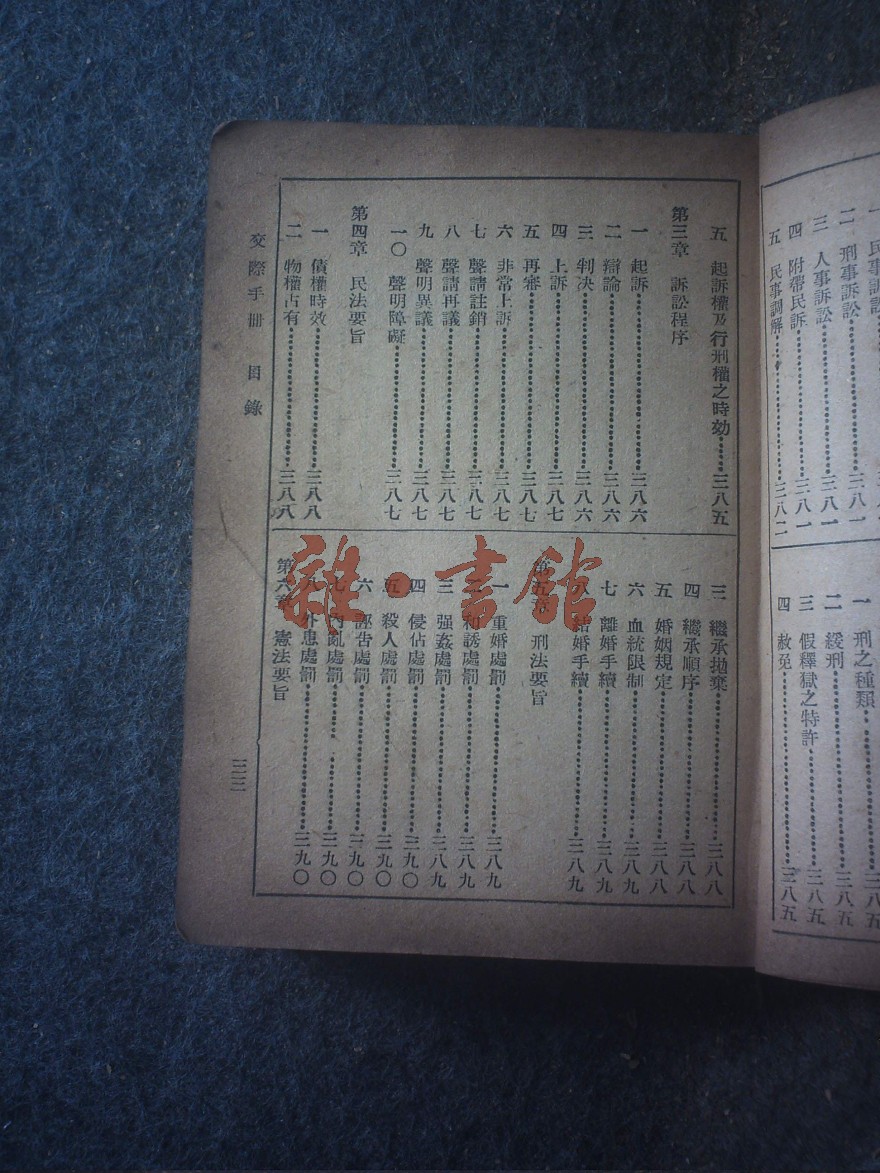 一 民事訴訟
二 刑事訴訟……三八一
三 人事訴訟……三八一
四 附帶民訴……三八一
五 民事調解……三八二
一 刑之種類……三八五
二 緩刑……三八五
三 假釋獄之特許……三八五
四 赦免……三八五
五 起訴權及行刑權之時効……三八五
第三章 訴訟程序
一 起訴……三八六
二 辯論……三八六
三 判决……三八六
四 上訴……三八七
五 再審……三八七
六 非常上訴……三八七
七 聲請註銷……三八七
八 聲請再議……三八七
九 聲明異議……三八七
一〇 聲明障礙……三八七
第四章 民法要旨
一 債權時效……三八八
二 物權占有……三八八
三 繼承抛棄……三八八
四 繼承順序……三八八
五 婚姻規定……三八八
六 血統限制……三八九
七 離婚手續……三八九
八 結婚手續……三八九
第五章 刑法要旨
一 重婚處罰……三八九
二 和誘處罰……三八九
三 强姦處罰……三八九
四 侵佔處罰……三九〇
五 殺人處罰……三九〇
六 誣告處罰……三九〇
七 內亂處罰……三九〇
八 外患處罰……三九〇
第六章 憲法要旨
交際手册 目錄
雜·書館